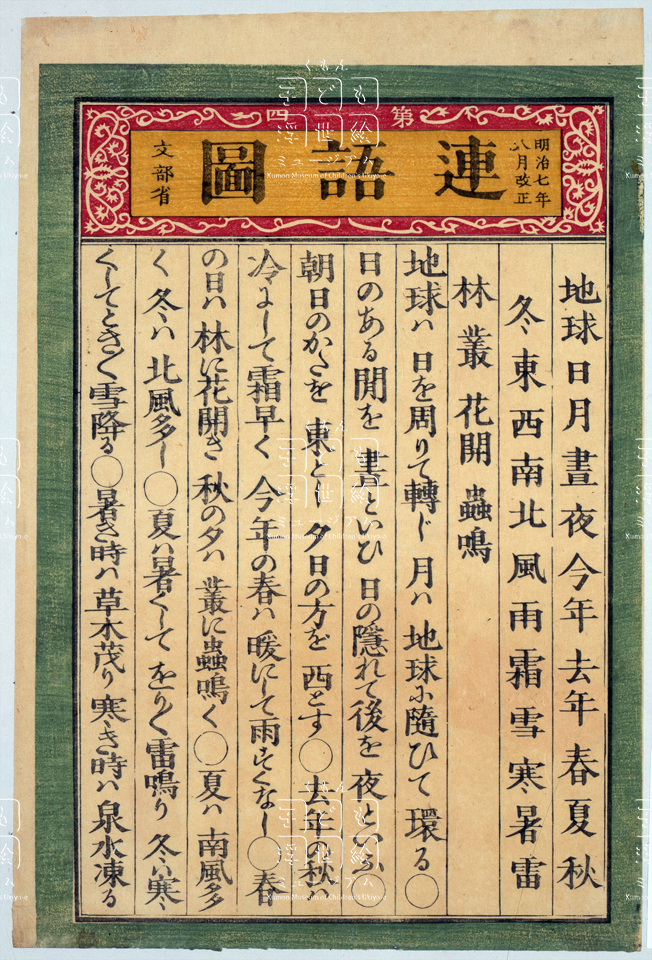 第四
連語圖
明治七年
八月改正
文部省
地球日月晝夜今年去年春夏秋
冬東西南北風雨霜雪寒暑雷
林叢花開蟲鳴
地球ハ日を周りて轉じ月ハ地球に隨ひて環る〇
日のある間を晝といひ日の隱れて後を夜といふ〇
朝日のかたを東とし夕日の方を西とす〇去年の秋ハ
冷にして霜早く今年の春ハ暖にして雨すくなし〇春
の日ハ林に花開き秋の夕ハ叢に蟲鳴く〇夏ハ南風多
く冬ハ北風多し〇夏ハ暑くしてをりく雷鳴り冬ハ寒
くしてときく雪降る〇暑き時ハ草木茂り寒き時ハ泉水凍る
くもん
子ども
浮世絵
ミュージアム
Kumon Museum of Children's Ukiyo-e